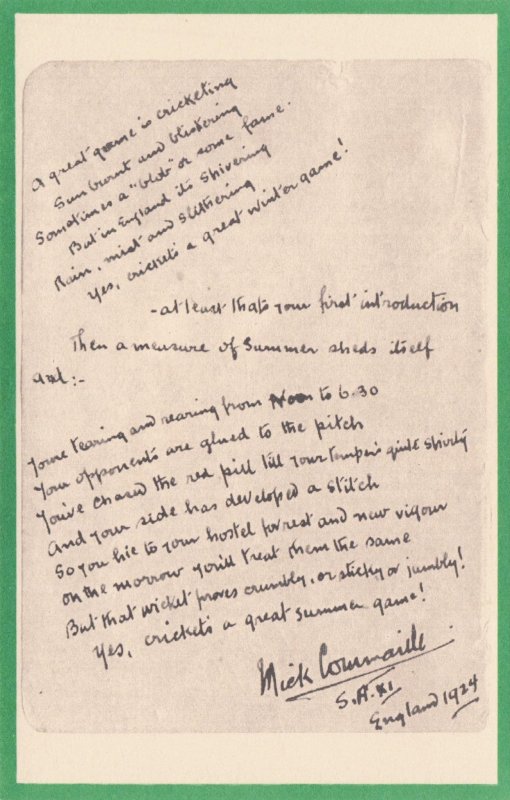 A great game is cricketing
Sunburnt and blistering
Sometimes a "blob" or some fame.
But in England its shivering
Rain, mist and slithering
Yes, crickets a great winter game!
- at least thats your first introduction
Then a measure of Summer sheds itself
and:-
You're tearing and rearing from Noon to 6.30
Your opponents are glued to the pitch
You've chased the red pill till your temper's quite shirty
And your side has developed a stitch
So you hie to your hostel for rest and new vigour
On the morrow you'll treat them the same
But that wicket proves crumbly, or sticky or jumbly!
Yes, cricket's a great summer game!
Mick Commaille
S.A. XI
England 1924